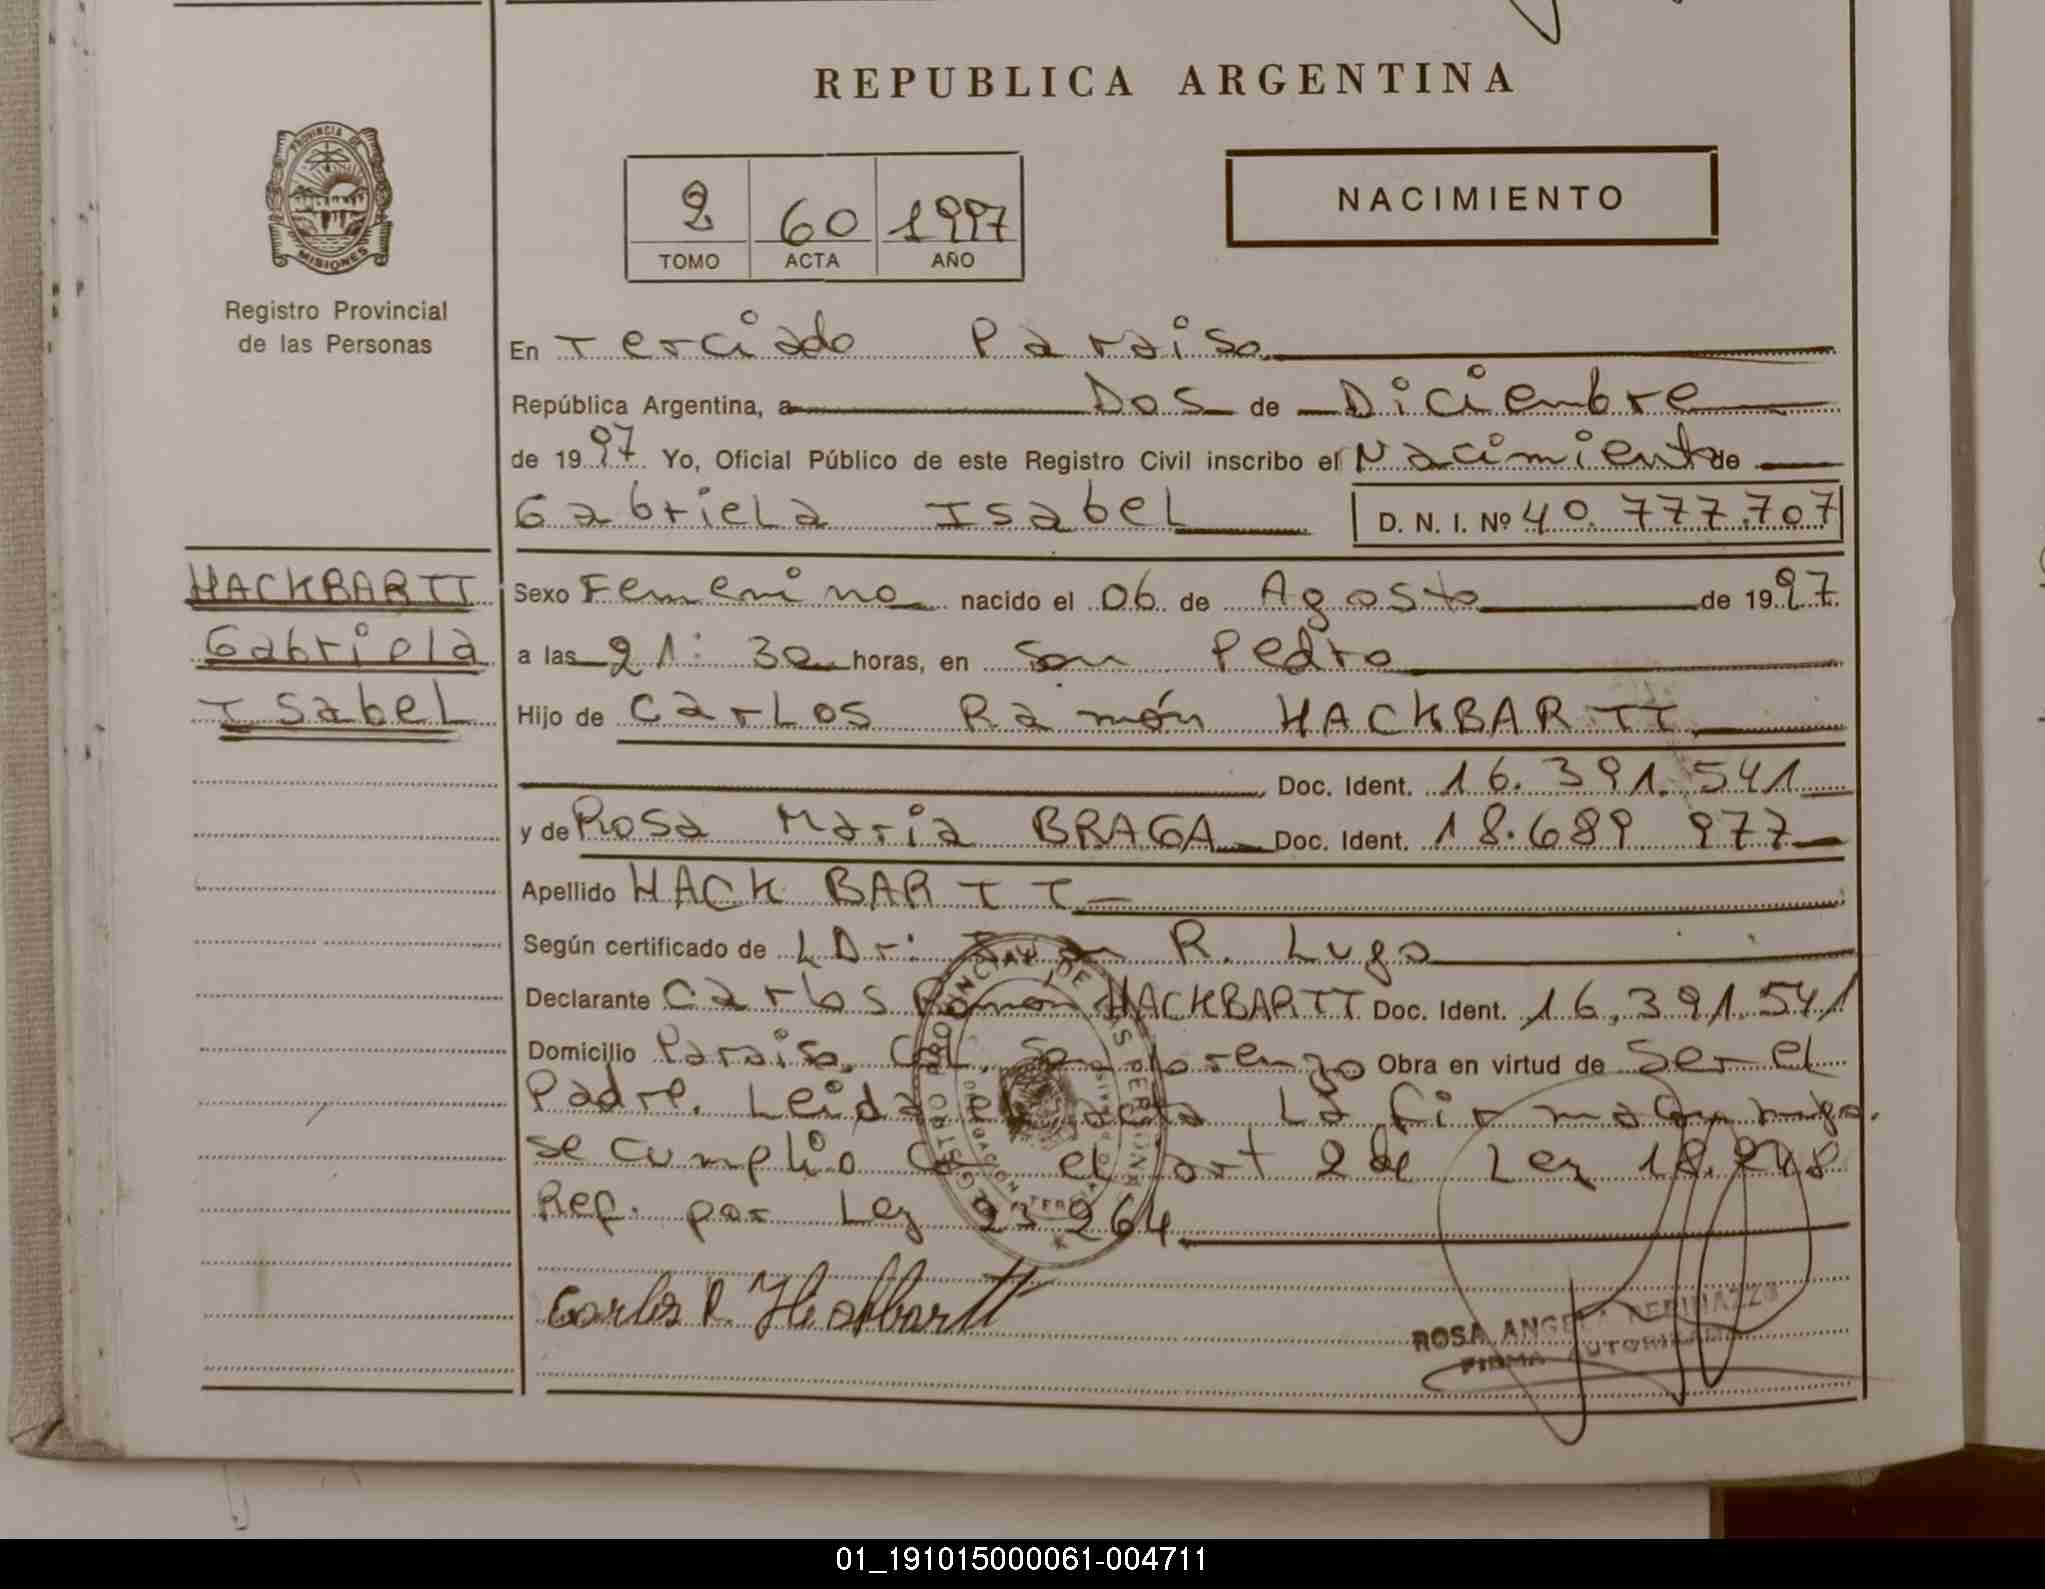 REPUBLICA ARGENTINA
PROVINCIA DE
MISIONES
Registro Provincial
de las Personas
2 60 1997
TOMO ACTA AÑO
NACIMIENTO
En Terciado Paraiso
República Argentina, a Dos de Diciembre
de 1997 Yo, Oficial Público de este Registro Civil inscribo el Nacimiento de
Gabriela Isabel D. N. I. Nº 40.777.707
HACKBARTT
Gabriela
Isabel
Sexo Femenino nacido el 06 de Agosto de 1997
a las 21:30 horas, en San Pedro
Hijo de Carlos Ramón HACKBARTT
Doc. Ident. 16.391.541
y de Rosa Maria BRAGA Doc. Ident. 18.689 977
Apellido HACKBARTT
Según certificado de L Dr: R. Lugo
Declarante Carlos Ramon HACKBARTT Doc. Ident. 16.391.541
Domicilio Paraiso, Col. San Lorenzo Obra en virtud de Ser el
Padre. Leida el acta La firma conmigo.
se cumplió con el art 2 de Ley 18.248
Ref. por Ley 23 264
Carlos R. Hackbartt
ROSA ANGELA
FIRMA AUTORIZADA
01_191015000061-004711